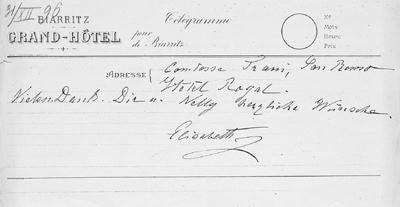 31/XII 96
BIARRITZ
GRAND-HÔTEL
Télégramme
pour
de Biarritz
No
Mots
Heure
Prix
ADRESSE Comtesse Trani, San Remo
Hotel Royal.
Vielen Dank. Dir u. Nelly herzliche Wünsche.
Elisabeth